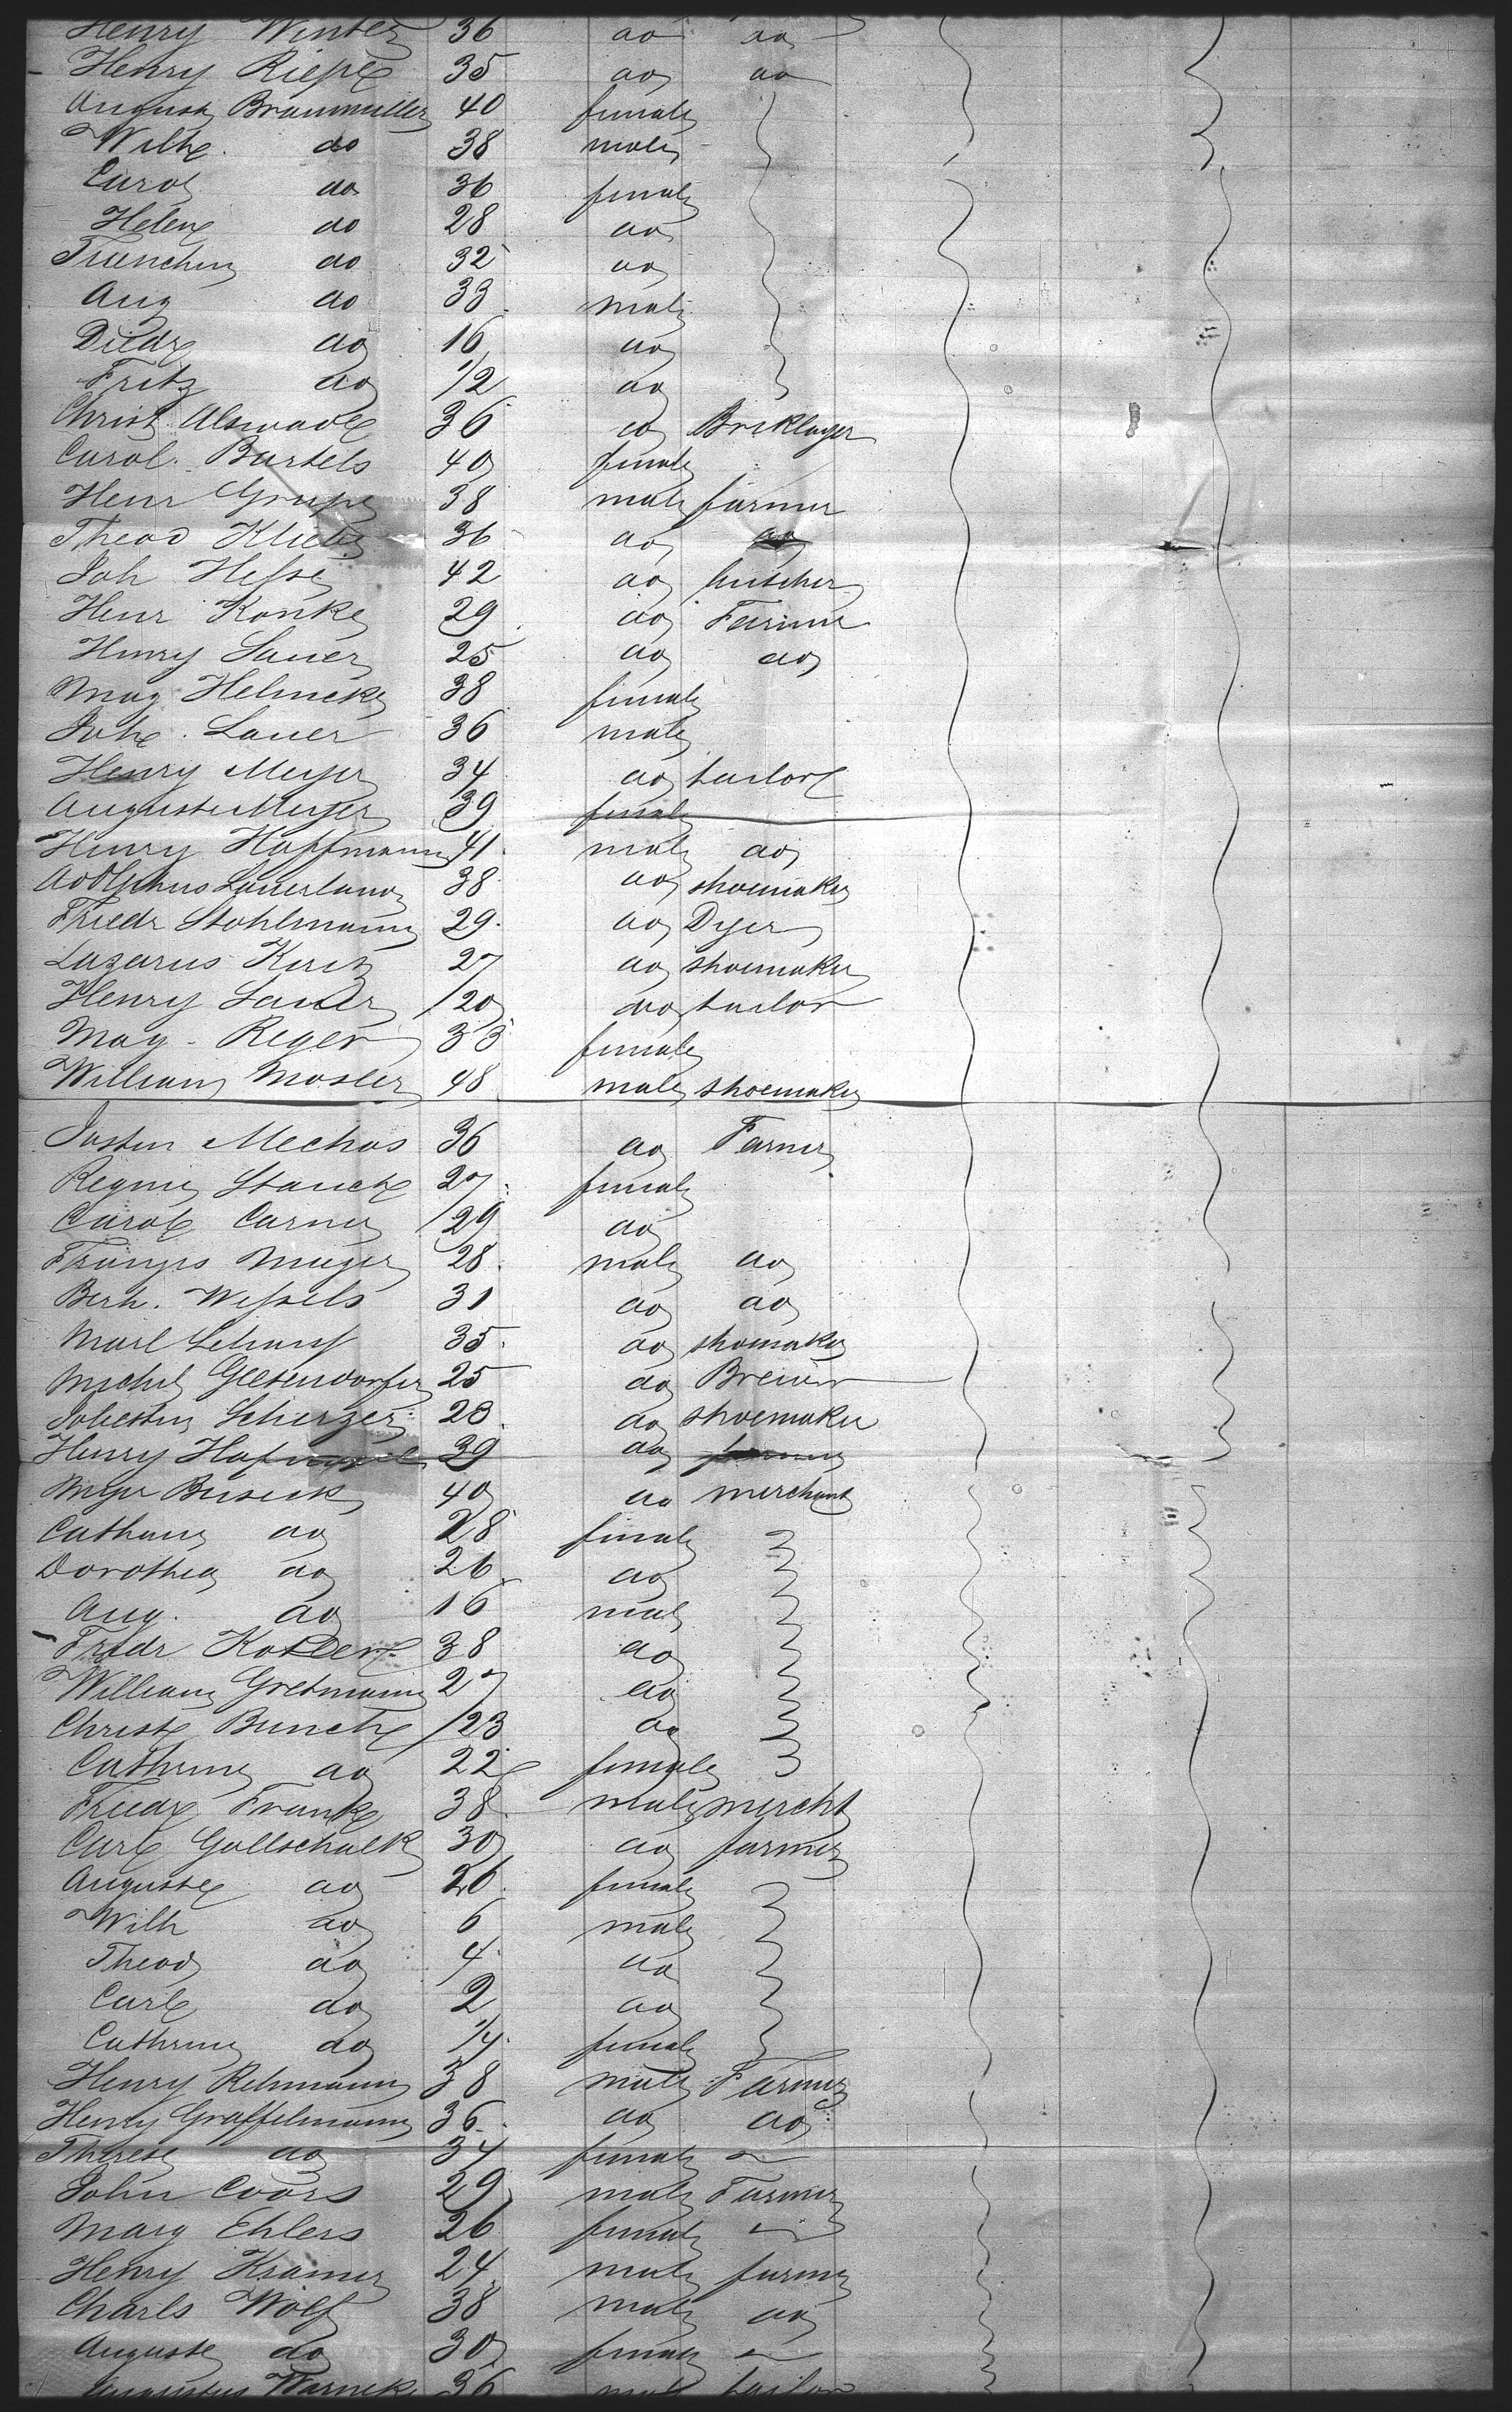 Henry Winter 36 do do
Henry Riepe 35 do do
August Braumuller 40 female
Wilh. do 38 male
Carol do 36 female
Helene do 28 do
Trienchen do 32 do
Aug do 33 male
Diedr do 16 do
Fritz do 1/2 do
Christ 36 do Bricklayer
Carol. Bartels 40 female
Henr Grupe 38 male farmer
Theod 36 do do
Joh Hesse 42 do butcher
Henr Konke 29 do Farmer
Henry Sauer 25 do do
Mag Helmeke 38 female
Joh. Lauer 36 male
Henry Meyer 34 do tailor
Auguste Meyer 39 female
Henry Hoffmann 41 male do
Adolphus Sauerland 38 do shoemaker
Friedr Stohlmann 29 do Dyer
Lazarus 27 do shoemaker
Henry Sauer 20 do tailor
Mag. Reger 33 female
William Mosler 48 male shoemaker
Justin Mechas 36 do Farmer
Regine Stauche 27 female
Carol Carner 29 do
Franzis Meyer 28 male do
Berh. Wessels 31 do do
35 do shoemaker
Michel 25 do Brewer
Scherzer 23 do shoemaker
Henry 39 do farmer
Meyer Buseck 40 do merchant
Cathrine do 28 female
Dorothea do 26 do
Aug. do 16 male
Fredr 38 do
William Gretmann 27 do
Christ Bunche 23 do
Cathrine do 22 female
Friedr Franke 38 male mercht
Carl Gottschalk 30 do farmer
Auguste do 26 female
Wilh do 6 male
Theod do 4 do
Carl do 2 do
Cathrine do 1/4 female
Henry Rehmann 38 male Farmer
Henry Graffelmann 36 do do
Therese do 34 female
John Coors 29 male Farmer
Mary Ehlers 26 female
Henry Kramer 24 male farmer
Charls Wolf 38 male do
Auguste do 30 female
Augustus Warneke 36 male tailor